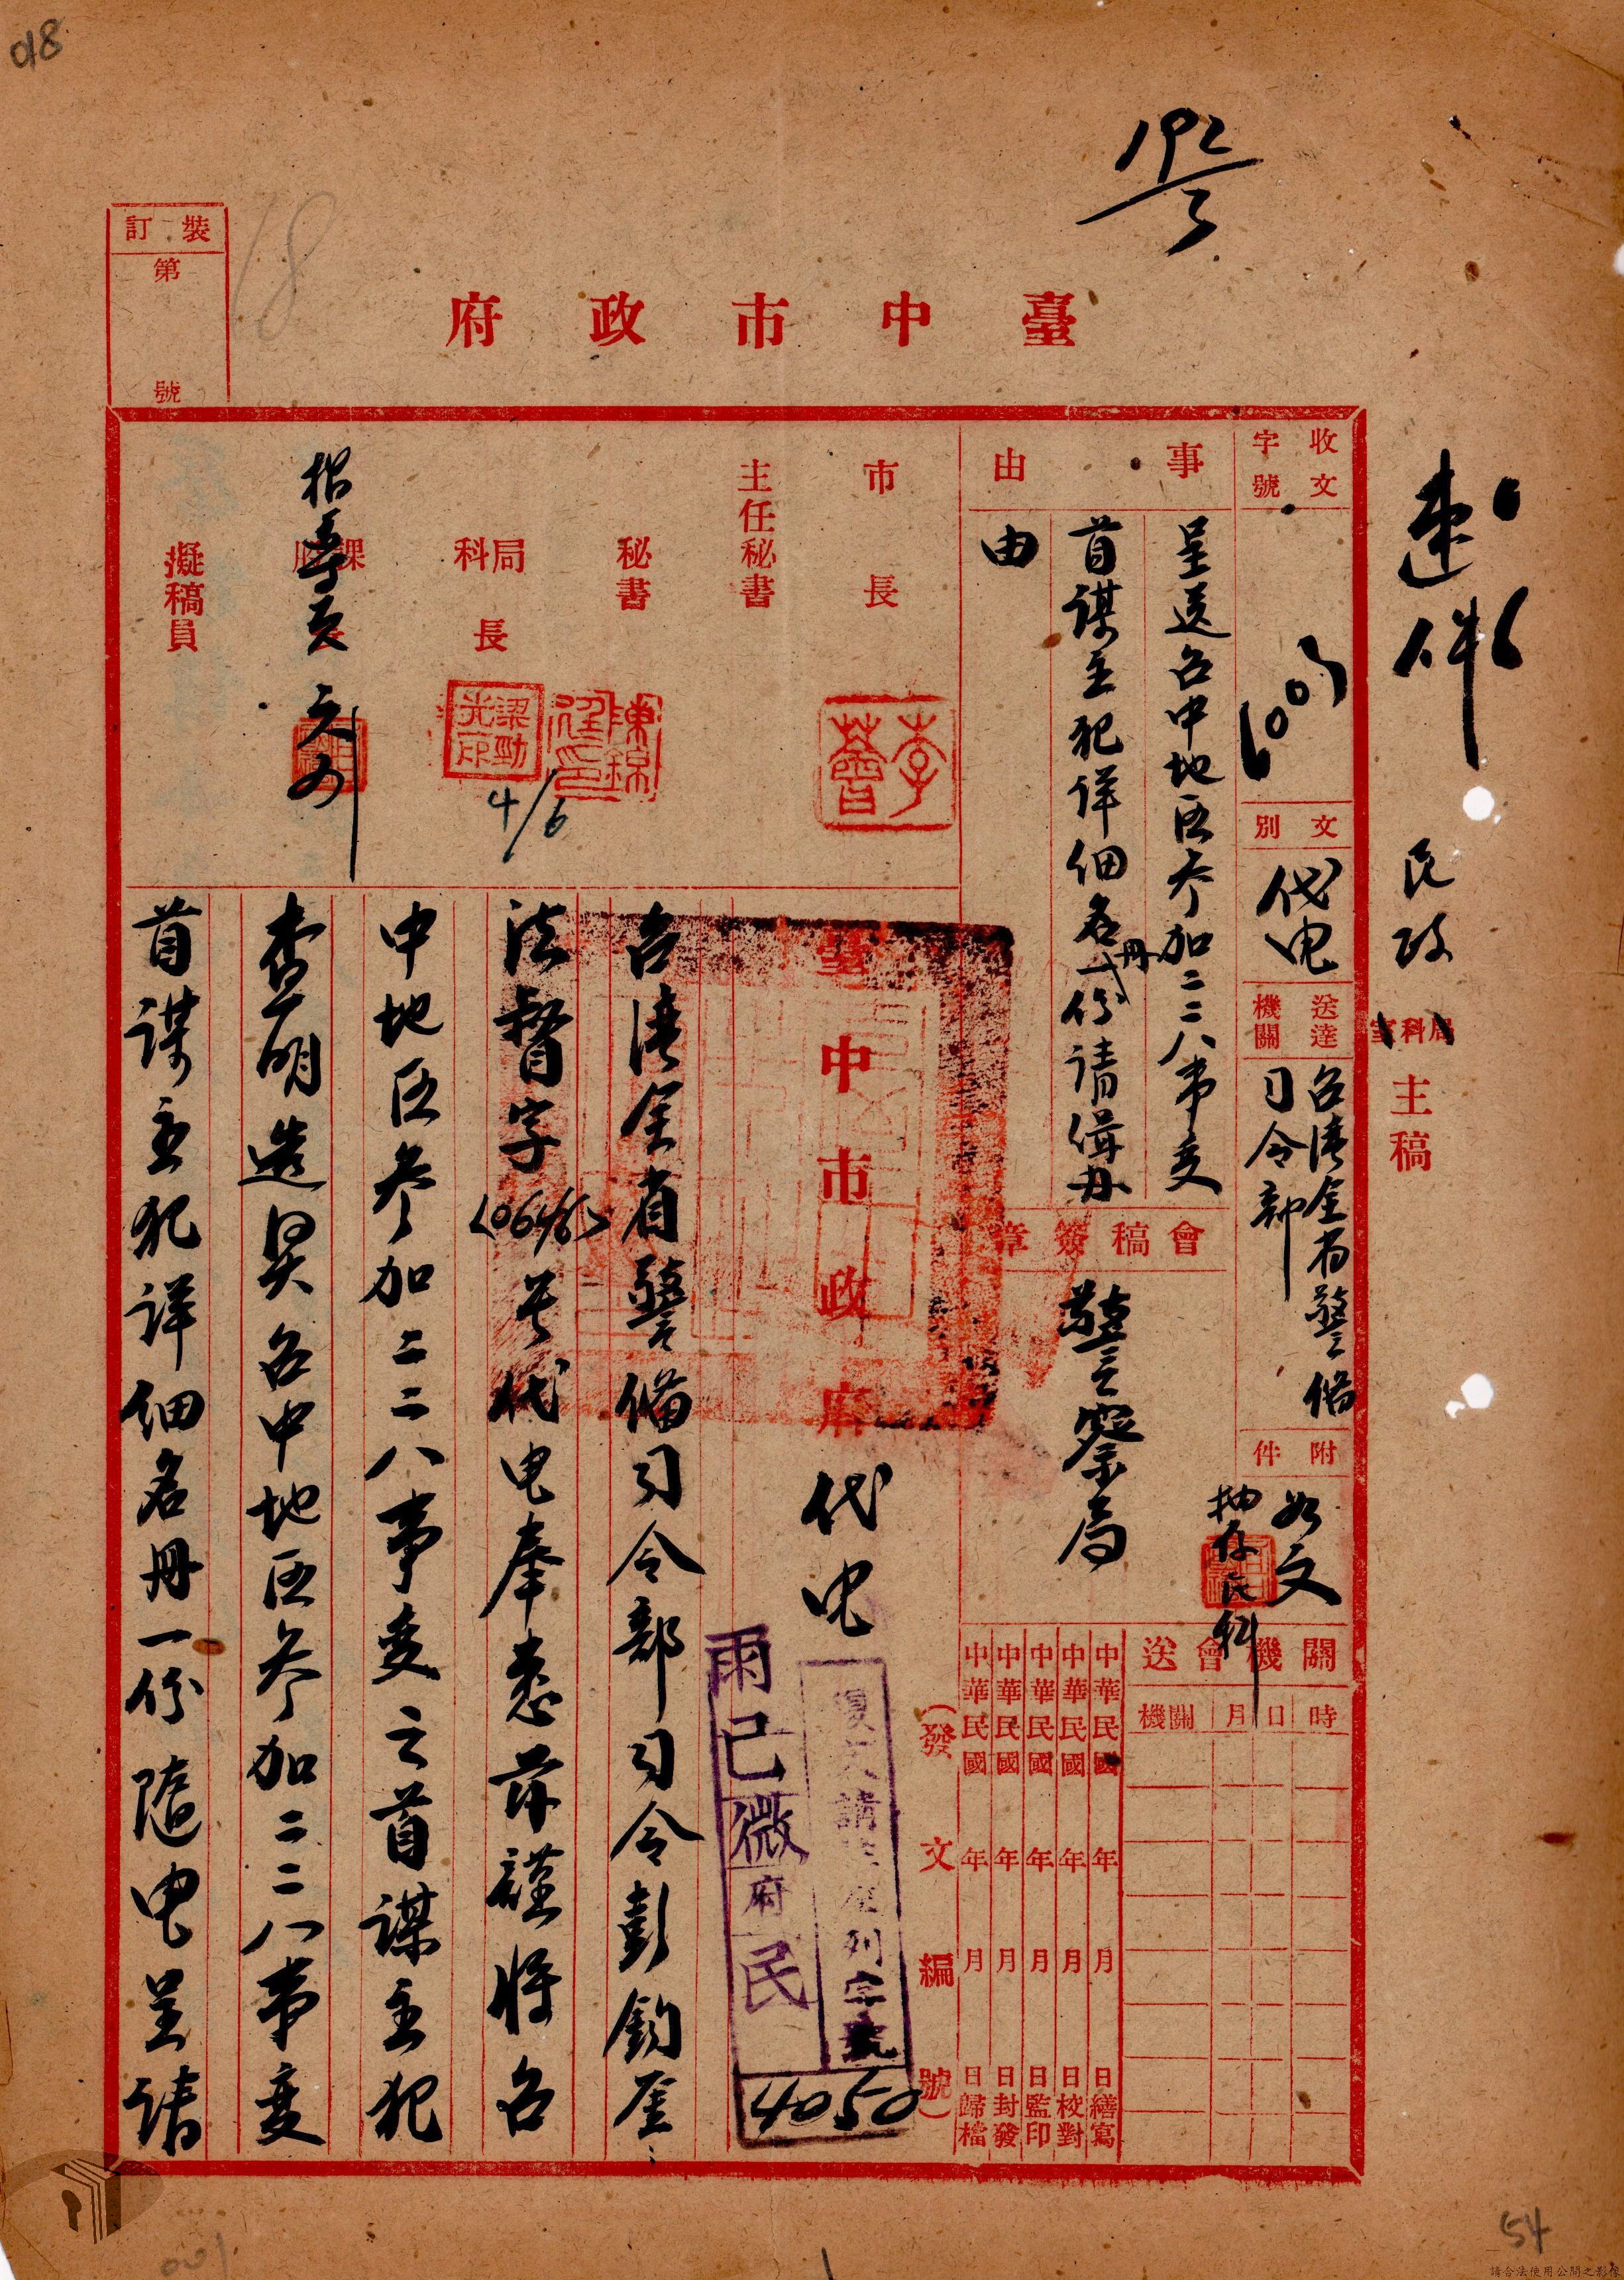 018
192
3
18
裝訂
第 號
臺中市政府
速件
民政
局科室
主稿
收文
字號
文別
代电
送達機關
台湾全省警備
司令部
附件
如文
抽存民科
事由
呈送台中地区参加二二八事变
首謀主犯詳细名册弍份请俻办
由
會稿簽章
警察局
送會機關
機關 月 日 時
中華民國 年 月 日繕寫
中華民國 年 月 日校對
中華民國 年 月 日監印
中華民國 年 月 日封發
中華民國 年 月 日歸檔
(發文編號)
市長
李薈
主任秘書
秘書
局科長
陳錦
梁勁光印
4/6
課
擬稿員
臺中市政府
代电
復文請
列字號
雨已微府民
4050
台湾全省警備司令部司令彭鈞鉴
法督字
号代电奉悉茲謹将台
中地区参加二二八事变之首謀主犯
查明造具台中地区参加二二八事变
首謀主犯詳细名册一份隨电呈请
54
001
請合法使用公開之影像